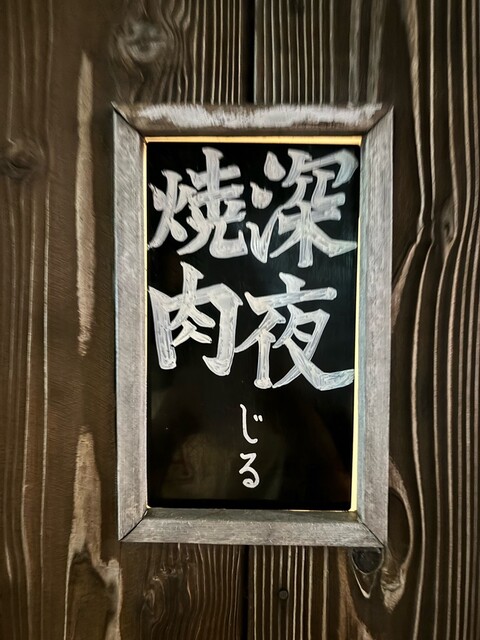 深夜
焼肉
じる